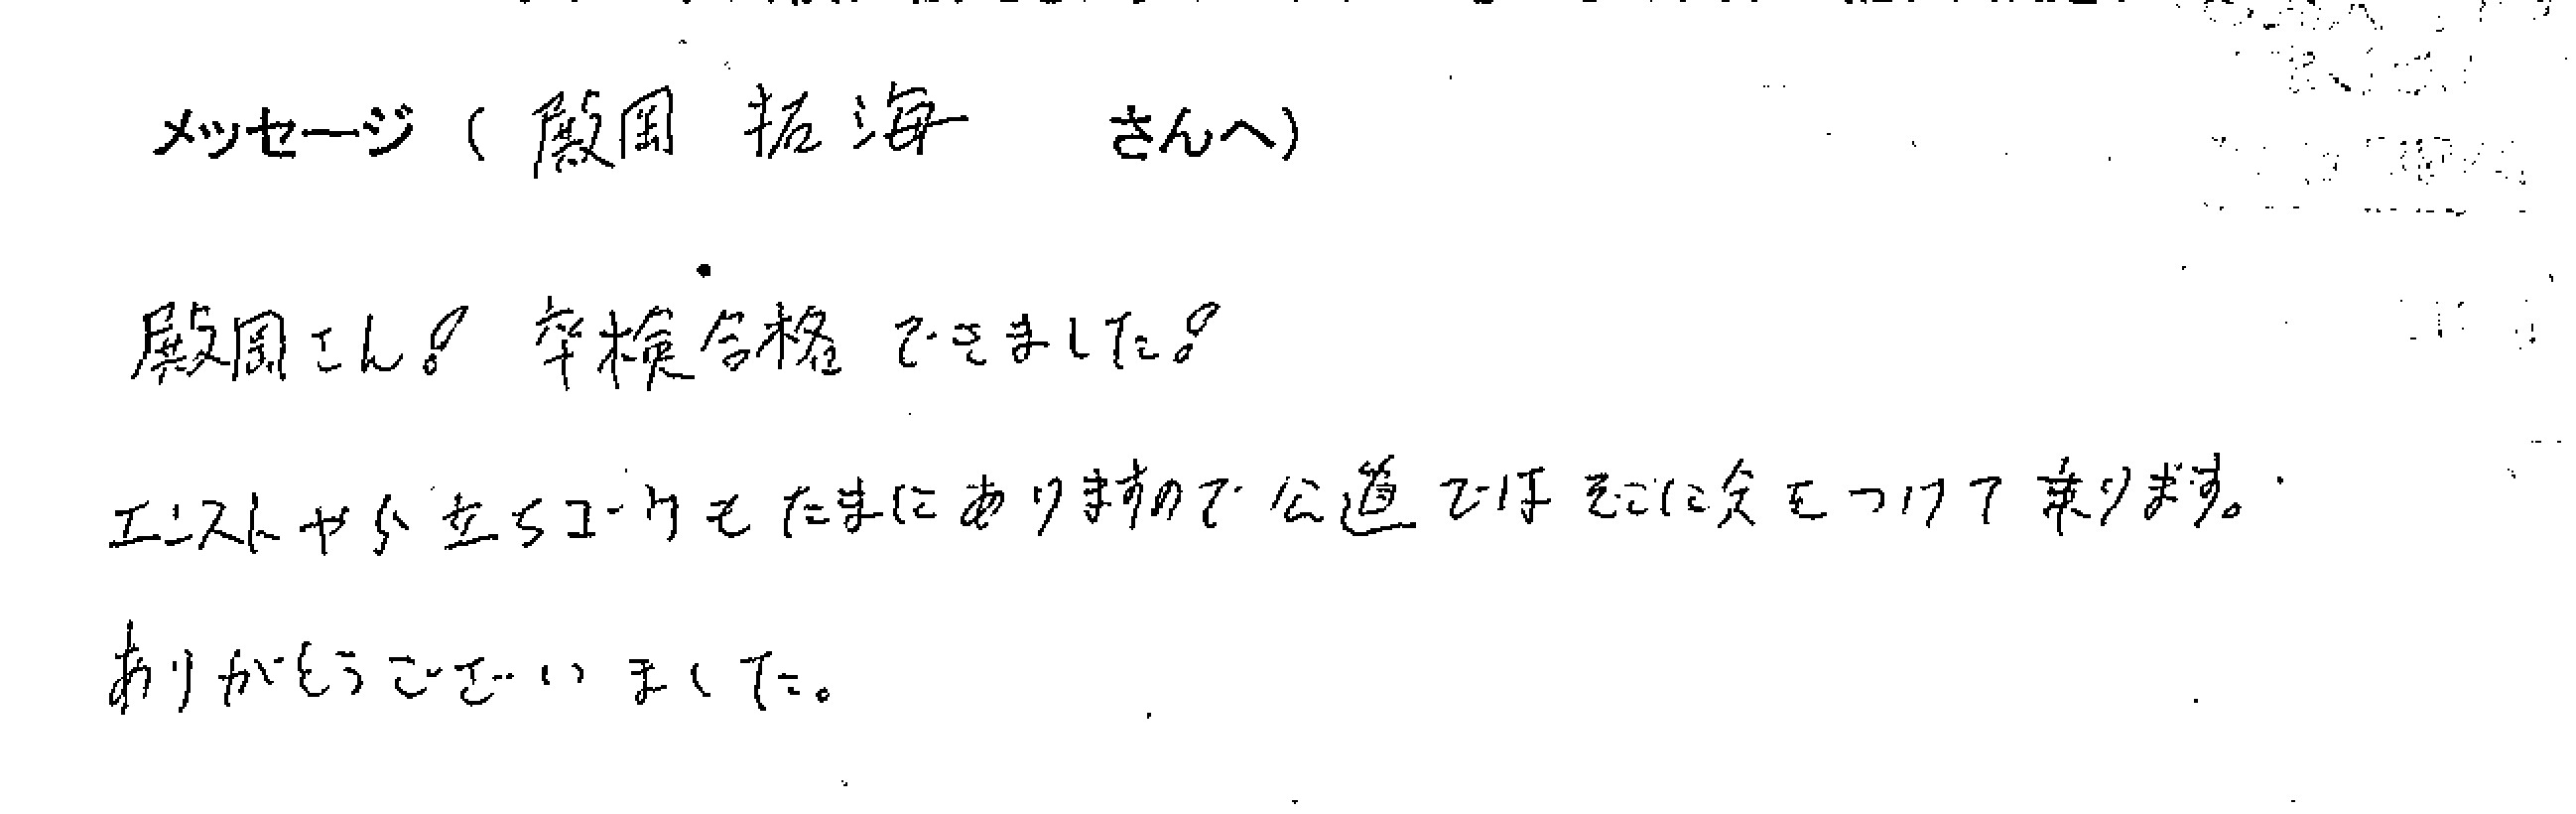 メッセージ ( 殿岡 拓海 さんへ)
殿岡さん! 卒検合格できました!
エンストや立ちゴケもたまにありますので公道ではそこに気をつけて乗ります。
ありがとうございました。